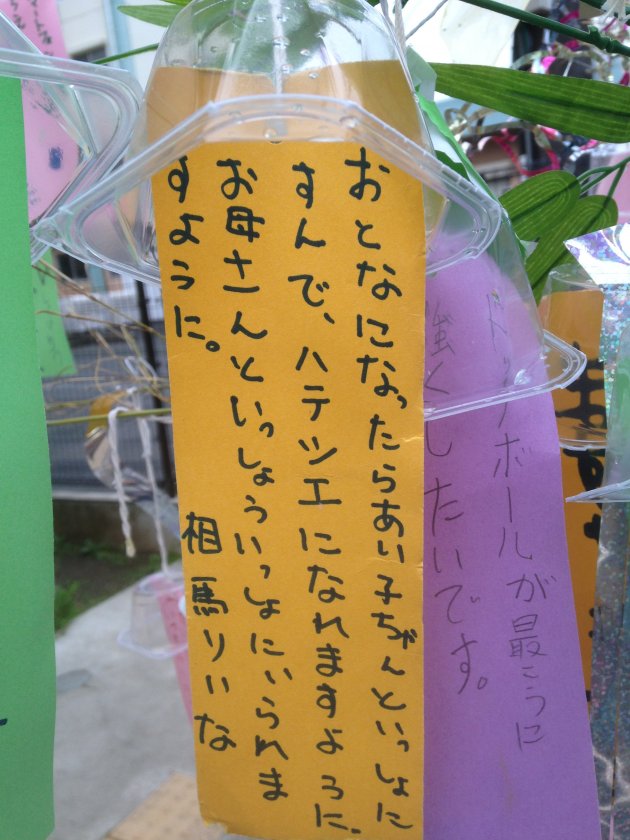 おとなになったらあい子ちゃんといっしょに
すんで、ハテシエになれますように。
お母さんといっしょういっしょにいられま
すように。
相馬りいな
ドッチボールが最こうに
強くしたいです。